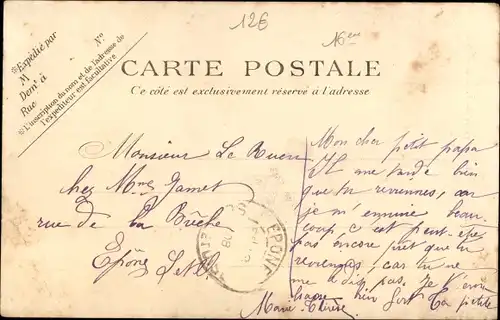 126
16em
※Expédié par
M
Nº
Demt à
Rue
※L'inscription du nom et de l'adresse de
l'expéditeur est facultative
CARTE POSTALE
Ce côté est exclusivement réservé à l'adresse
Monsieur Le
chez Mme Jamet
rue de la Brèche
Epône S et O
EPONE
Mon cher petit papa
Il me tarde bien
que tu reviennes, car
je m'ennuie beau-
coup, c'est peut-être
pas encore prêt que tu
reviennes, car tu ne
me dis pas. Je t'em
bien fort ta petite
Marie-Thérèse